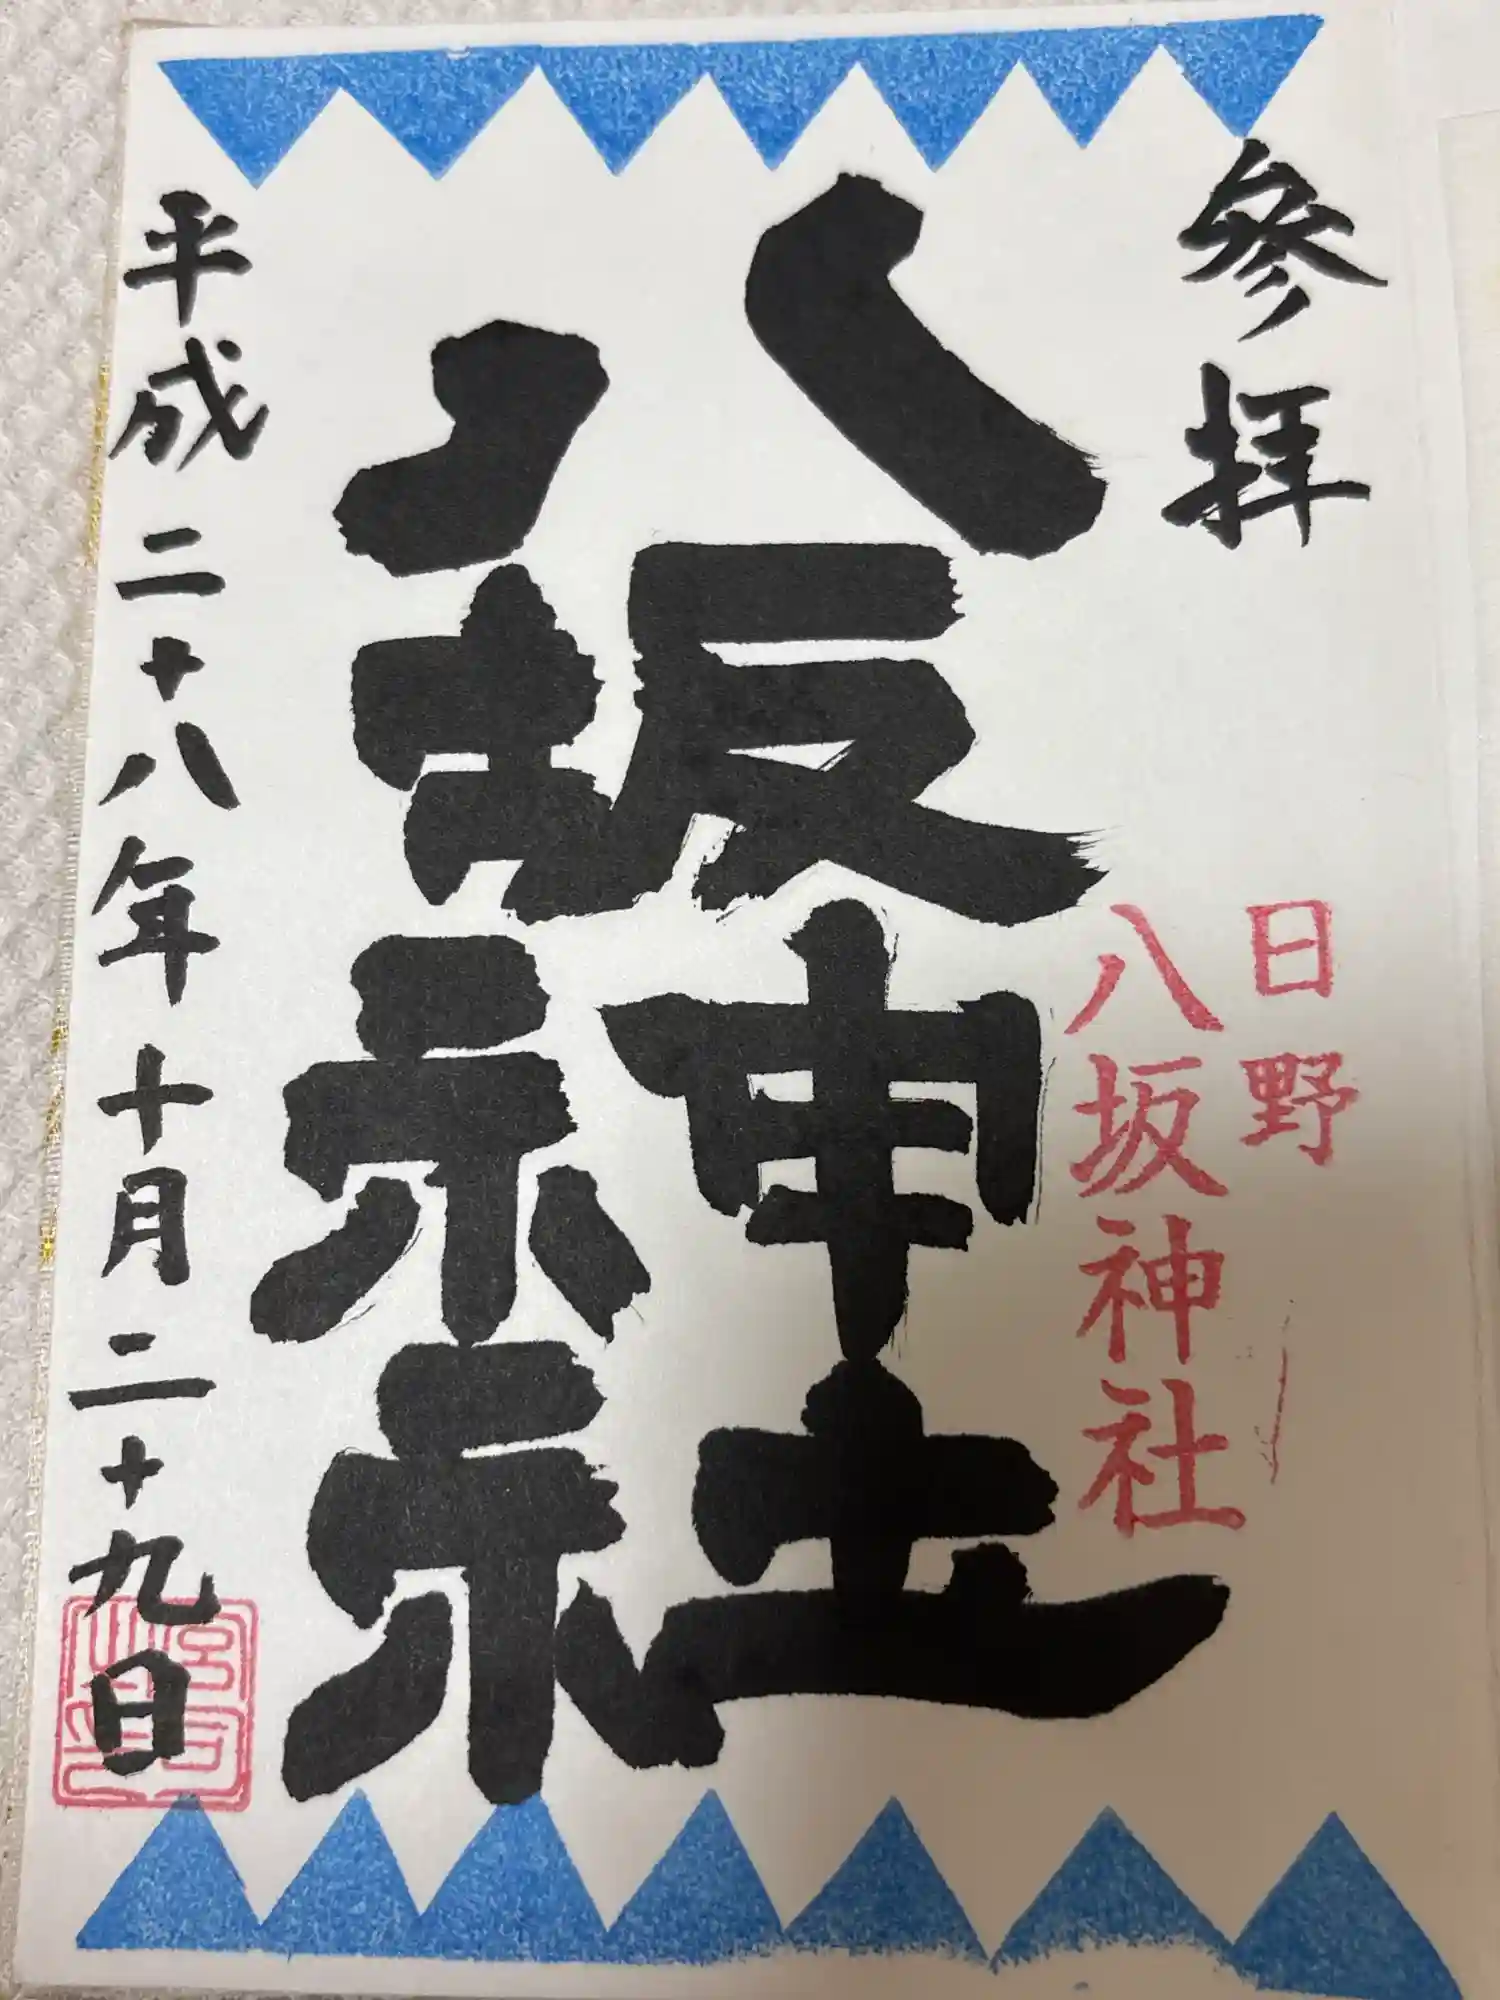 參拝
日野
八坂神社
八坂神社
平成二十八年十月二十九日